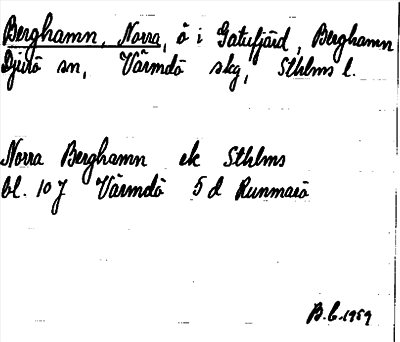 Berghamn, Norra, ö i Gatufjärd, Berghamn
Djurö sn, Värmdö skg, Sthlms l.
Norra Berghamn ek Sthlms
bl. 107 Värmdö 5 d Runmarö
B.G. 1959